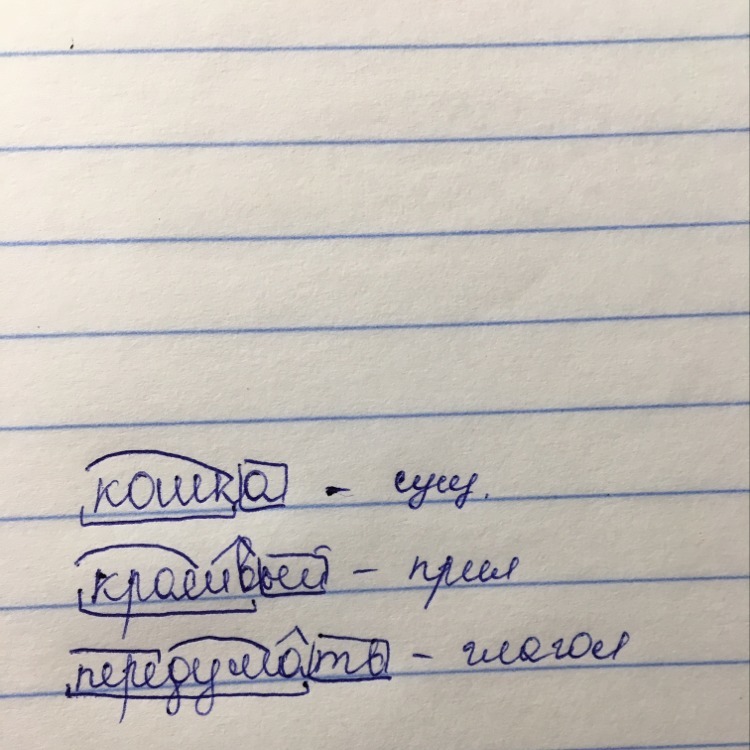 кошка - сущ.
красивый - прил
передумать - глагол